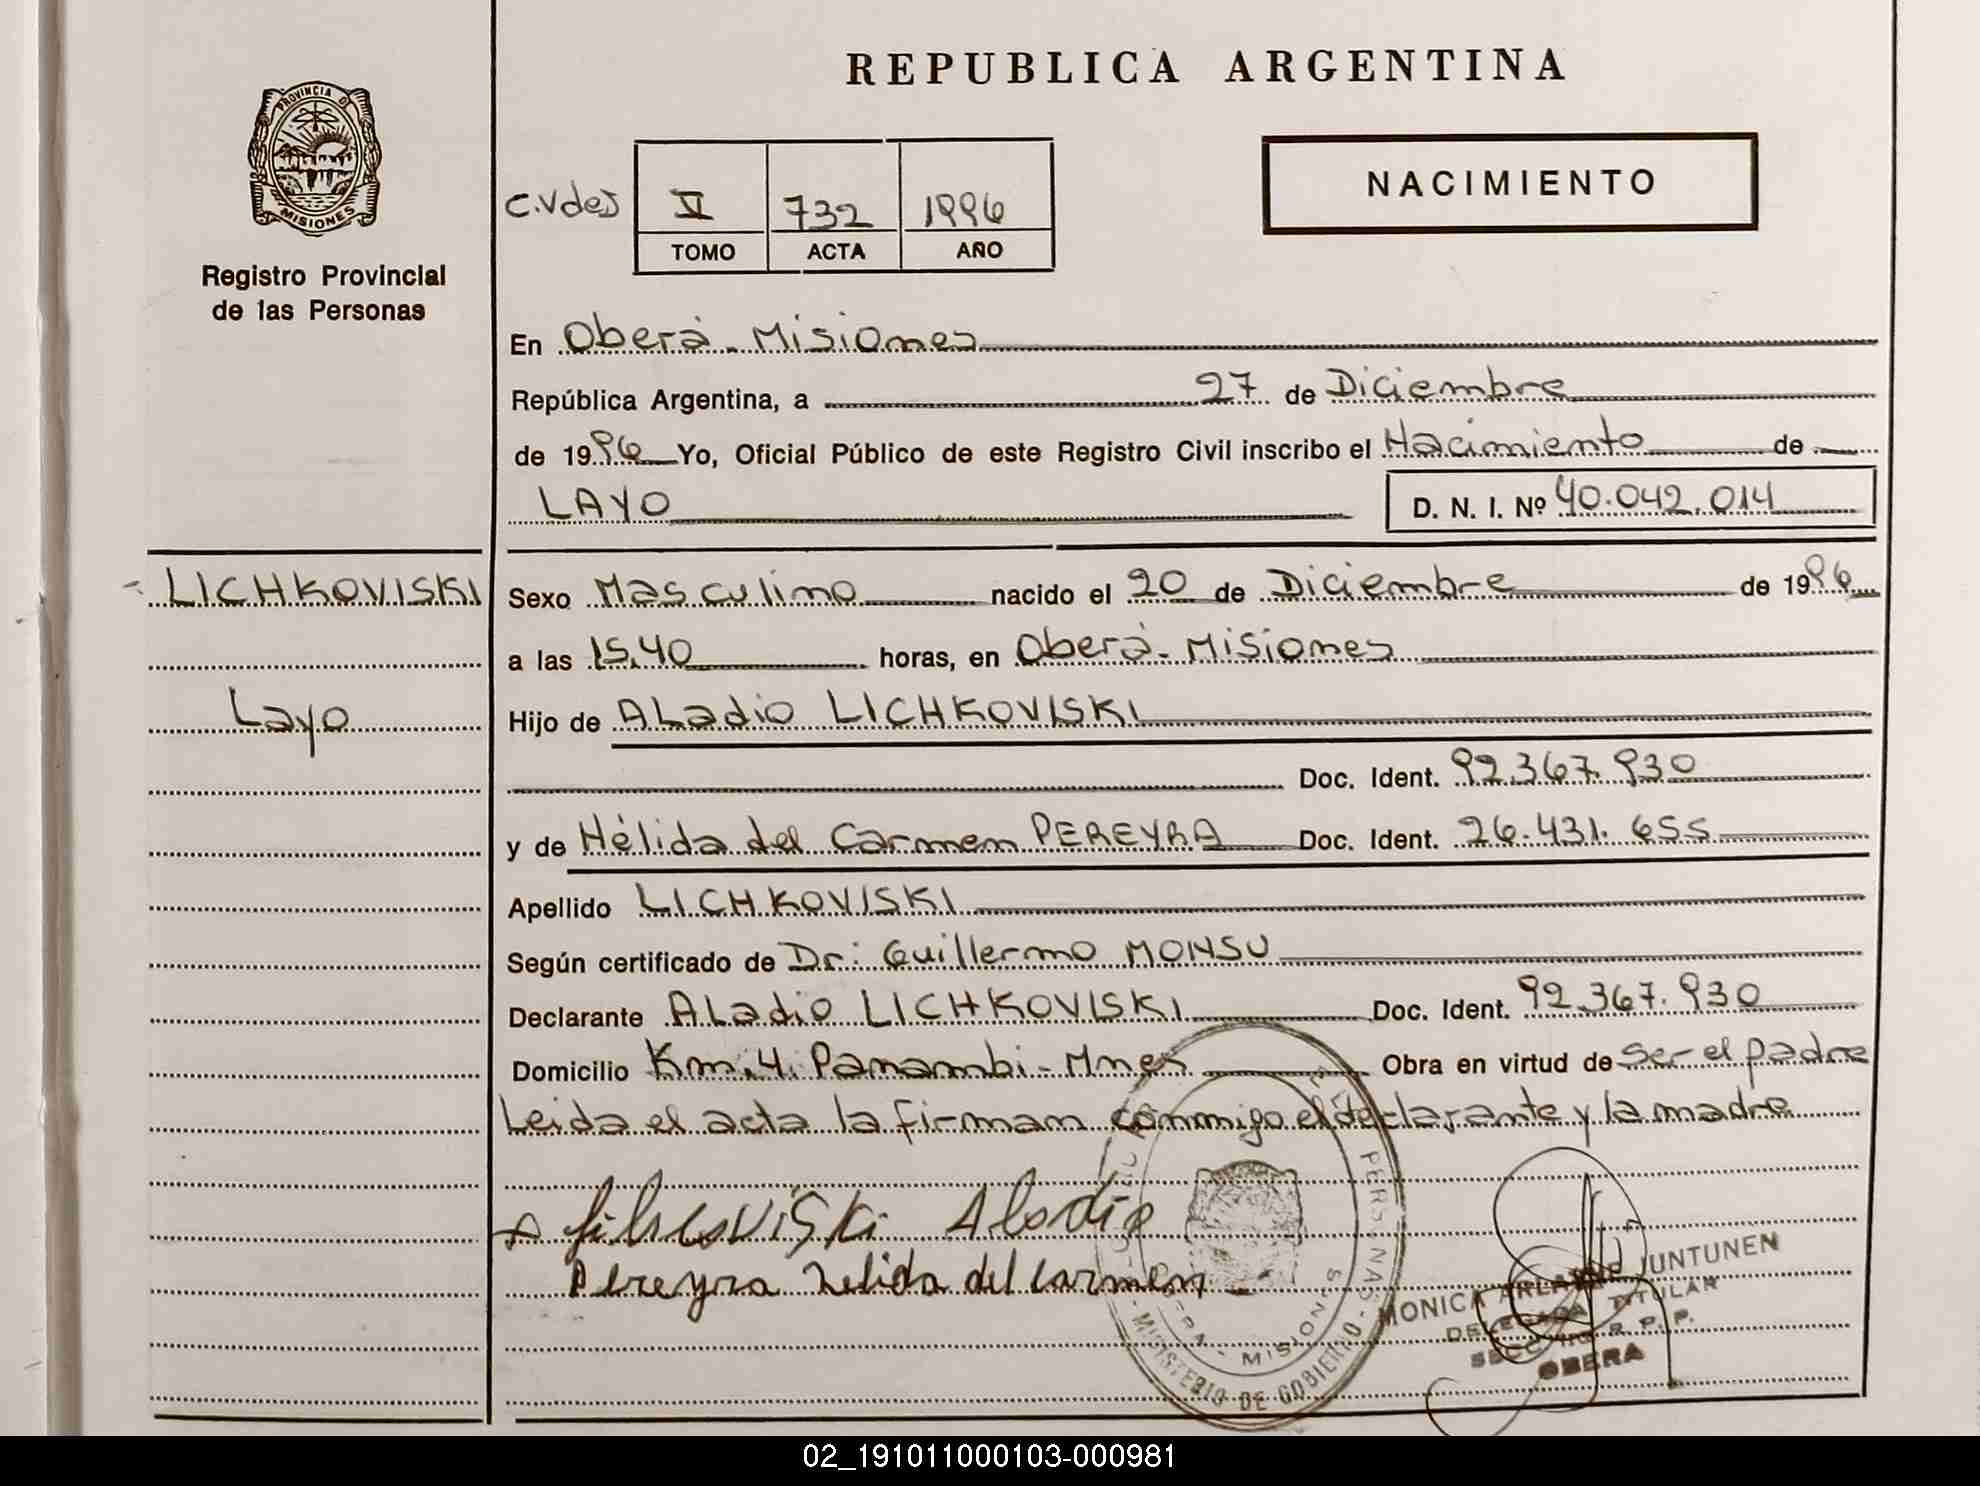 REPUBLICA ARGENTINA
PROVINCIA DE
MISIONES
Registro Provincial
de las Personas
C.VdeJ V 732 1996
TOMO ACTA AÑO
NACIMIENTO
En Oberá - Misiones
República Argentina, a 27 de Diciembre
de 1996 Yo, Oficial Público de este Registro Civil inscribo el Nacimiento de
LAYO D. N. I. Nº 40.042.014
LICHKOVISKI Sexo Masculino nacido el 20 de Diciembre de 1996
a las 15,40 horas, en Oberá - Misiones
Layo Hijo de ALadio LICHKOVISKI
Doc. Ident. 92.367.930
y de Hélida del Carmen PEREYRA Doc. Ident. 26.431.655
Apellido LICHKOVISKI
Según certificado de Dr: Guillermo MONSU
Declarante ALadio LICHKOVISKI Doc. Ident. 92.367.930
Domicilio Km. 4. Panambi - Mnes Obra en virtud de ser el padre
Leida el acta la firman conmigo el declarante y la madre
Pereyra Nelida del Carmen
MISIONES
MINISTERIO DE GOBIERNO
MONICA JUNTUNEN
DELEGADA TITULAR
R. P. P.
OBERA
02_191011000103-000981